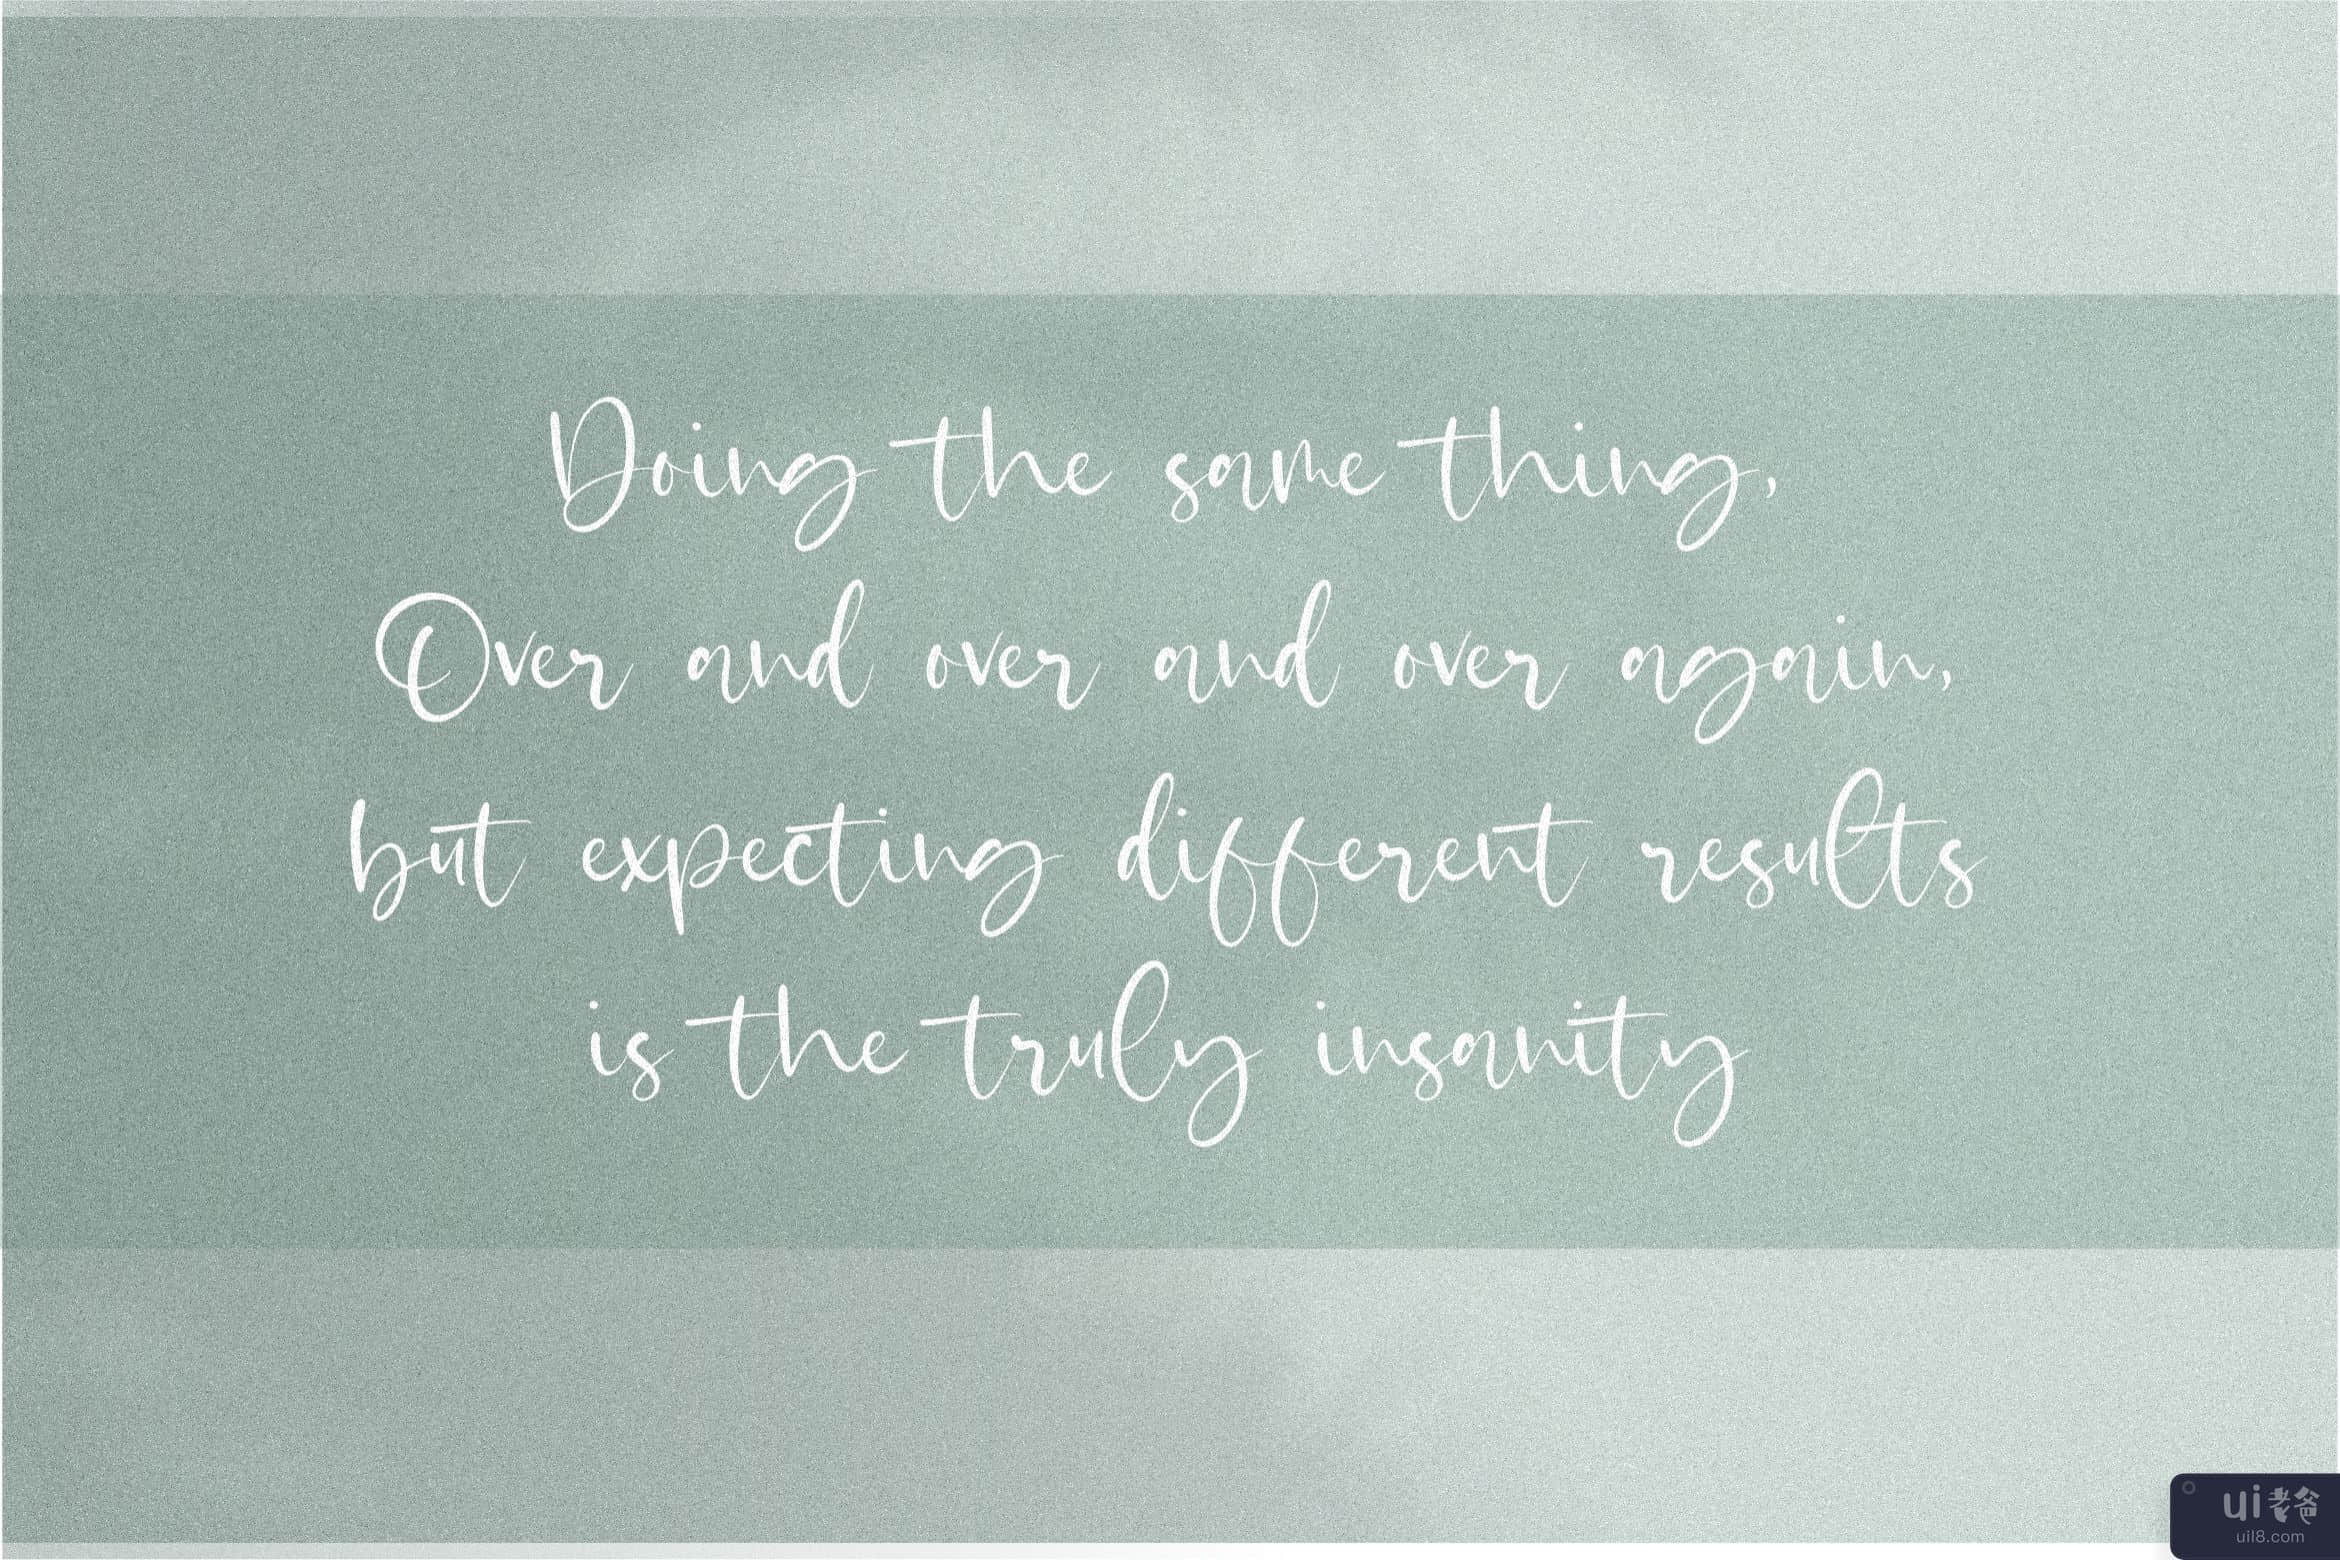 Doing the same thing,
Over and over and over again,
but expecting different results
is the truly insanity
ui老爸
uil8.com